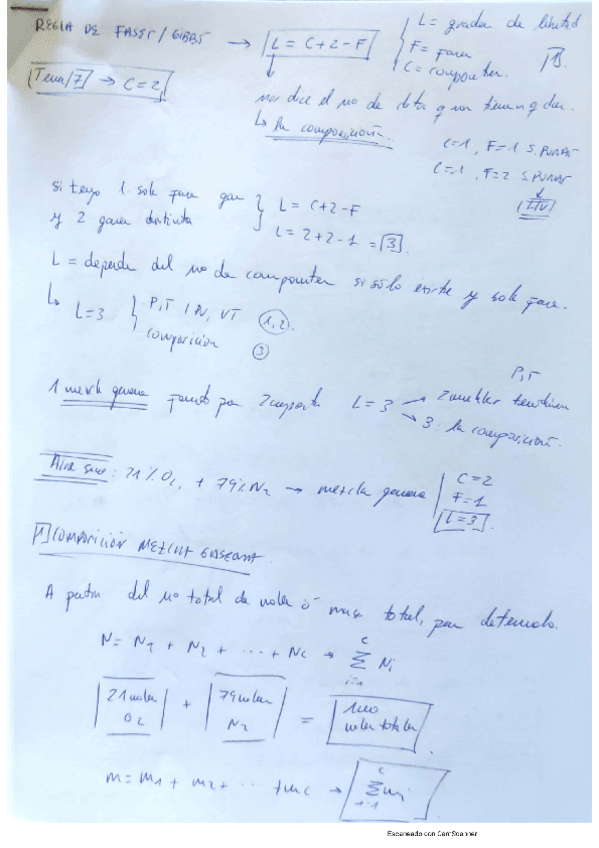 REGLA DE FASES / GIBBS → L = C+2-F
L = grados de libertad
F = fases
C = componentes.
Tema 7 → C=2
nos dice el no de datos q nos tienen q dar.
↳ la composición.
C=1, F=1 S. PURAS
C=1, F=2 S. PURAS
si tengo 1 sola fase gas
y 2 gases distintos
L = C+2-F
L = 2+2-1 = 3
L = depende del no de componentes si sólo existe 1 sola fase.
L=3
P,T / P,V, VT (1,2).
composición (3)
1 mezcla gaseosa formada por 2 componentes L=3
P,T
3: la composición.
Aire seco: 21% O2 + 79% N2 → mezcla gaseosa
C=2
F=1
L=3
1 COMPOSICIÓN MEZCLA GASEOSA
A partir del no total de moles ó masa total, para determinado.
N = N1 + N2 + ... + Nc → Σ Ni
i=1
c
21 moles O2 + 79 moles N2 = 100 moles totales
m = m1 + m2 + ... + mc → Σ mi
i=1
c
Escaneado con CamScanner